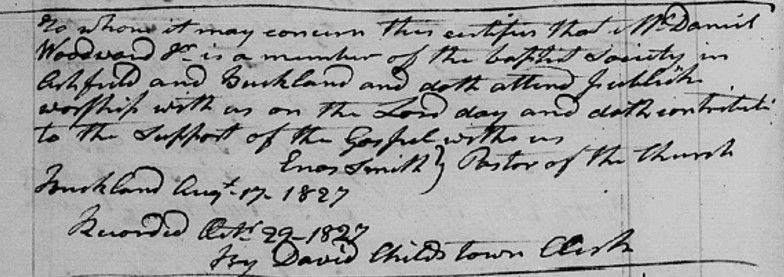 To whom it may concern this certifies that Mr. Daniel
Woodward Jr. is a member of the baptist Society in
Ashfield and Buckland and doth attend publick
worship with us on the Lord day and doth contribute
to the Support of the Gospel with us
Enos Smith } Pastor of the Church
Buckland Augt. 17- 1827
Recorded Octr 29- 1827
By David Childs town Clerk